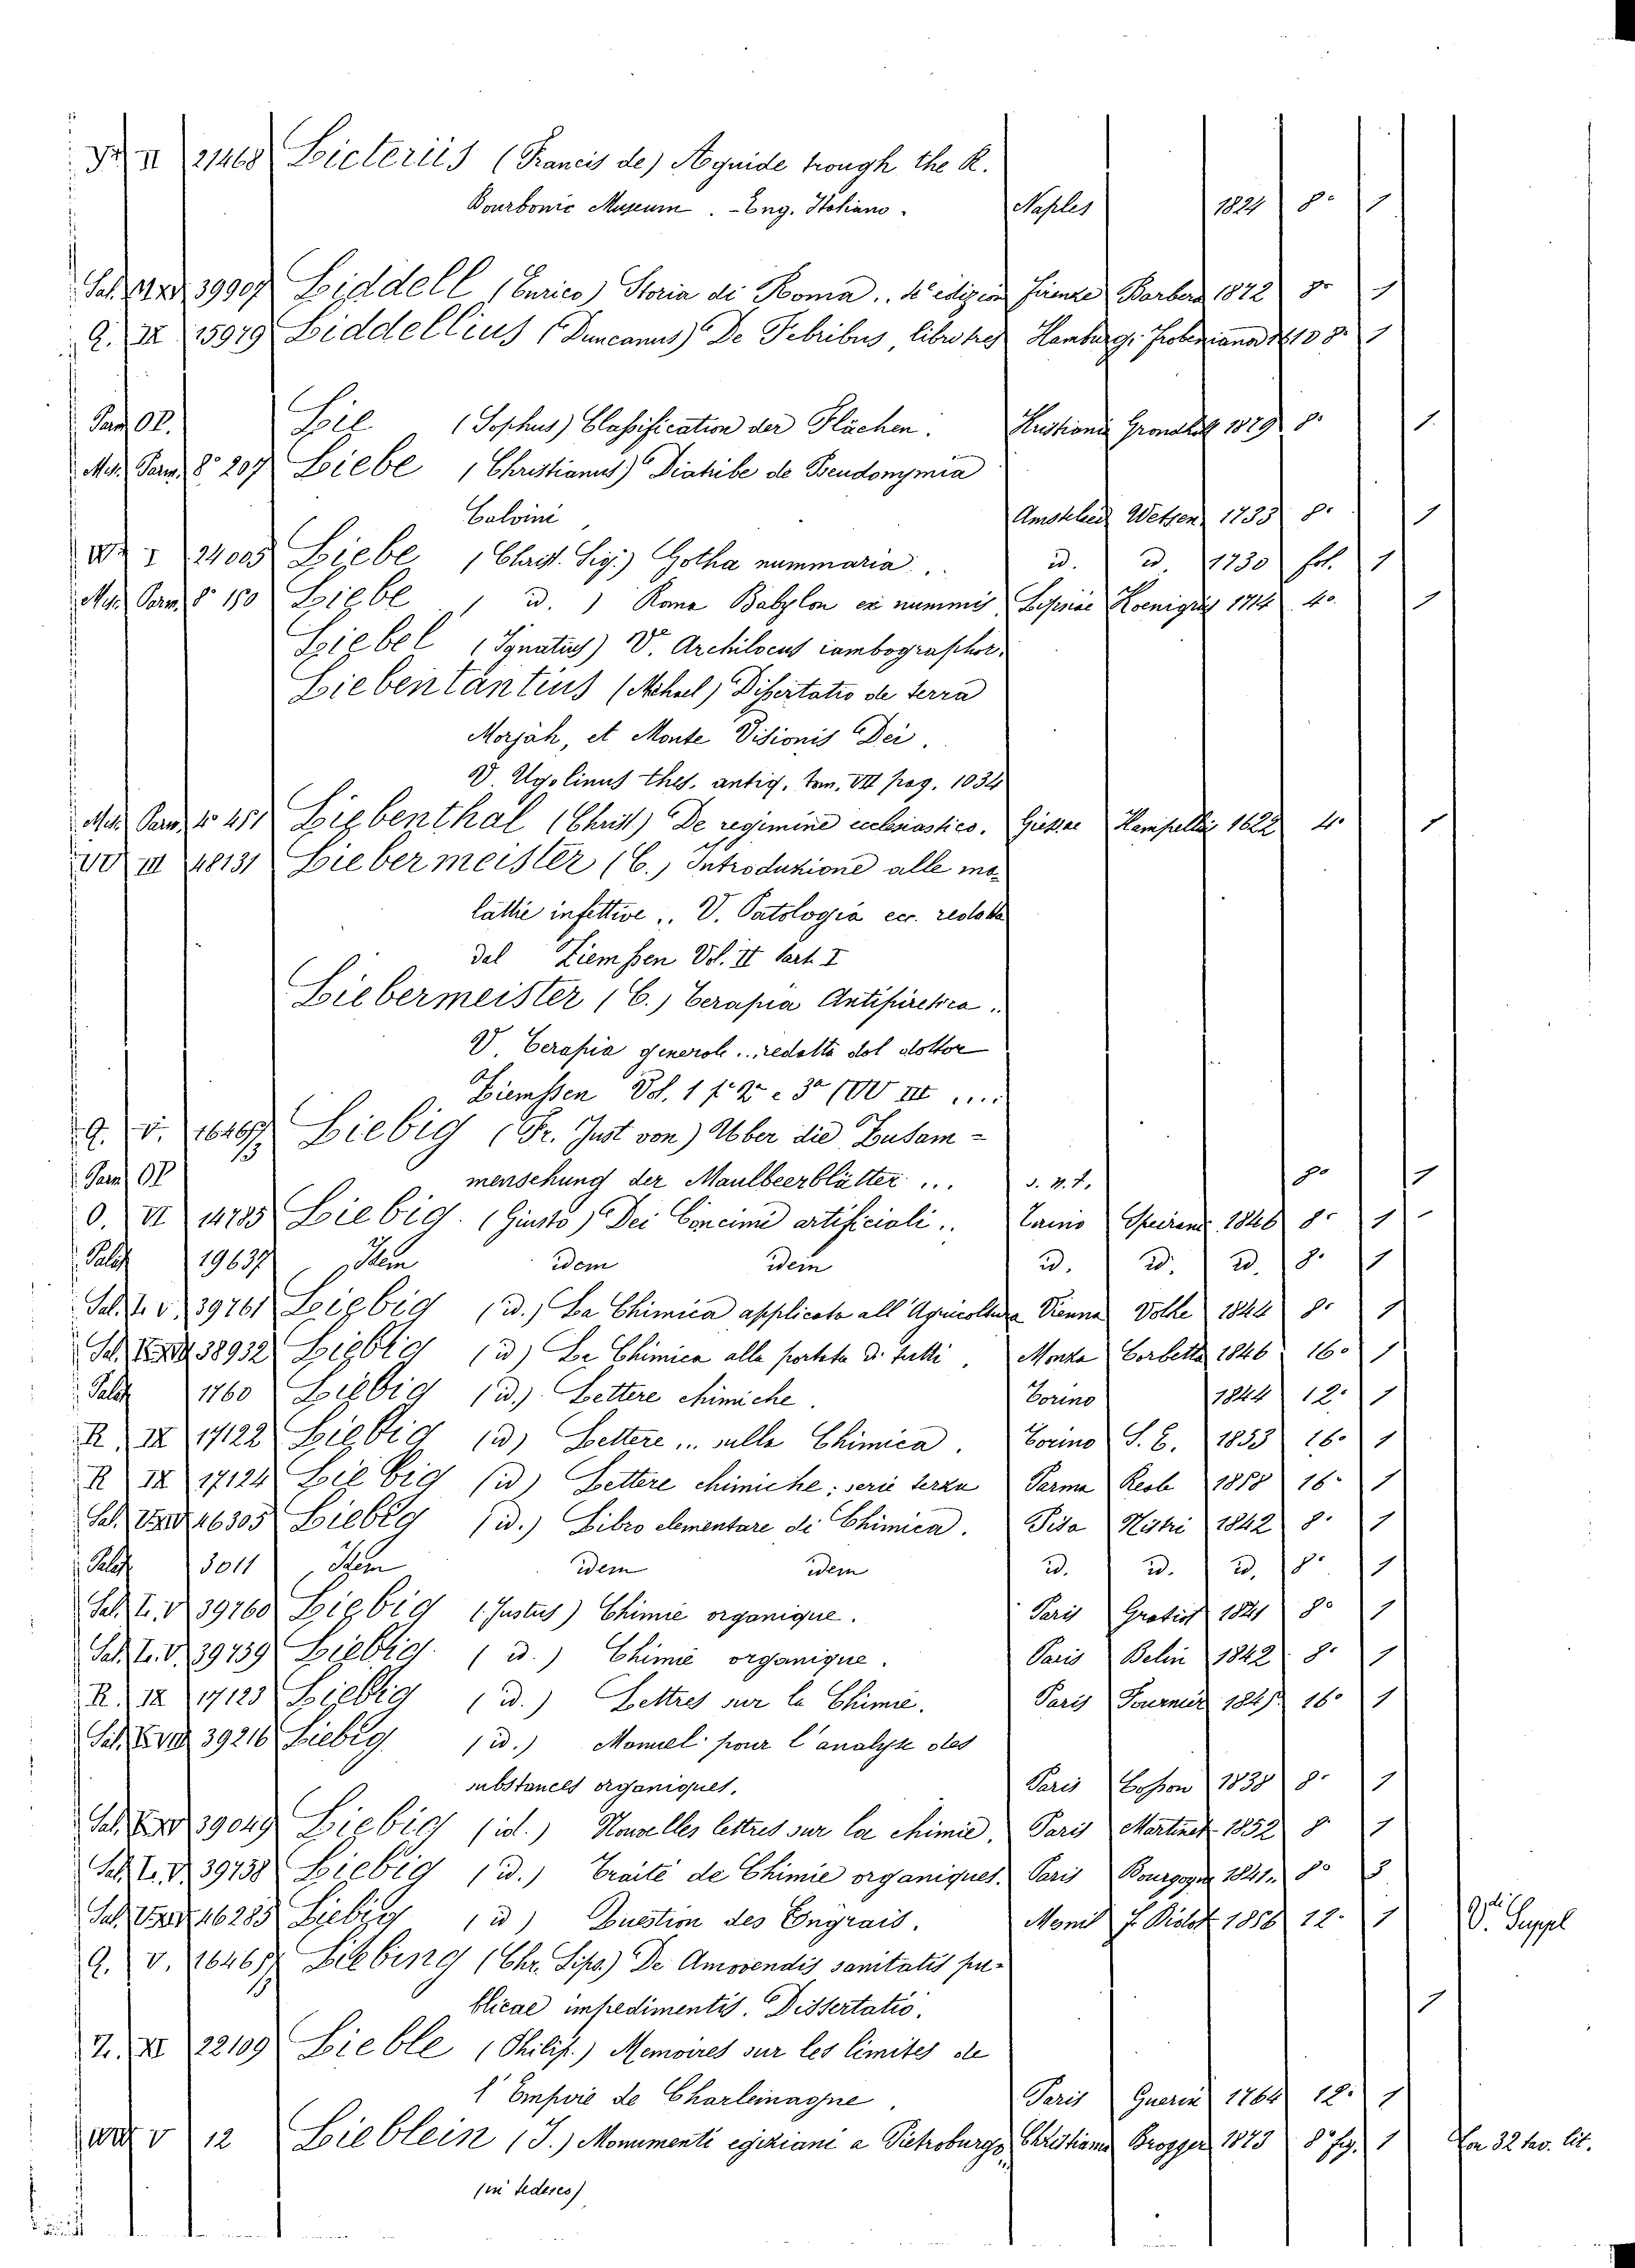 II 21468 Licteriis (Francis de) A guide trough the R.
Bourbonic Museum. - Eng. Italiano. Naples 1824 8º 1
39907 Liddell (Enrico) Storia di Roma.. edizione Firenze Barbera 1872 8º 1
Q. IX 15979 Liddellius (Duncanus) De Febribus, libri tres Hamburg. Frobeniana 1610 8º 1
Parm OP. Lie (Sophus) Classification der Flächen. Grondhal 1879 8º 1
Mus. Parm. 8º 207 Liebe (Christianus) Diatribe de Pseudonymia
Calvini Wetsen. 1733 8º 1
I 24005 Liebe (Christ. Sig.) Gotha nummaria.. id. id. 1730 fol. 1
Parm. 8º 150 Liebe ( id. ) Babylon ex nummis Lipsiae Koenigius 1714 4º 1
Liebel (Ignatius) V. Archilocus iambographor.
Liebentantius (Mchael) Dissertatio de terra
Morjah, et Monte Visionis Dei.
V. Ugolinus thes. antiq. tom. VII pag. 1034
Parm. 4º 451 Liebenthal (Christ) De regimine ecclesiastico. Giessae Hampellii 1622 4º 1
III 48131 Liebermeister (C.) Introduzione alle ma-
lattie infettive.. V. Patologia ecc. redotta
dal Ziemssen Vol. II part. I
Liebermeister (C.) Terapia Antipiretica..
V. Terapia general.. redatta dal dottor
Ziemssen Vol. 1 pº 2º e 3º (VV III ....
Q. V. 16467/13 Liebig (Fr. Just von) Uber die Zusam=
Parm OP mensehung der Maulbeerblätter ... s. n. t. 8º 1
O. VI 14785 Liebig. (Giusto) Dei Concimi artificiali.. Speirani 1846 8º 1
Palat 19637 Idem idem idem id. id. id. 8º 1
Sal. L. V. 39761 Liebig (id.) La Chimica applicata all'Agricoltura Vienna Volke 1844 8º 1
38932 Liebig (id) La Chimica alla portata di tutti. Monza Corbetta 1846 16º 1
Palat 1760 Liebig (id.) Lettere chimiche. Torino 1844 12º 1
R. IX 17122 Liebig (id) Lettere ... sulla Chimica. Torino S. E. 1853 16º 1
R IX 17124 Liebig (id) Lettere chimiche; serie terza Parma 16º 1
Sal. 46305 Liebig (id.) Libro elementare di Chimica. Pisa Nistri 1842 8º 1
Palat 3011 Item idem idem id. id. id. 8º 1
Sal. L. V 39760 Liebig (Justus) Chimie organique. Paris Gratiot 1841 8º 1
Sal. L. V. 39759 Liebig ( id. ) Chimie organique. Paris Belin 1842 8º 1
R. IX 17123 Liebig (id.) Lettres sur la Chimie. Paris Fournier 16º 1
39216 Liebig (id.) Manuel pour l'analyse des
substances organiques. Paris Cosson 1838 8º 1
39049 Liebig (id.) Nouvelles lettres sur la chimie. Paris Martinet 1852 8º 1
Sal. L. V. 39758 Liebig (id.) Traité de Chimie organiques. Paris Bourgogne 1841.. 8º 3
46285 Liebig (id) Question des Engrais. 12º 1 V. Suppl
Q. V. 16467 Liebing (Chr. Lips.) De Amovendis sanitatis pu-
blicae impedimentis. Dissertatio. 1
Z. XI 22109 Lieble (Philip.) Memoires sur les limites de
l'Empire de Charlemagne. Paris Guerin 1764 12º 1
V 12 Lieblein (J.) Monumenti egiziani a Pietroburgo, Christiania Brogger 1873 8º fig. 1 Con 32 tav. lit.
(in tedesco)